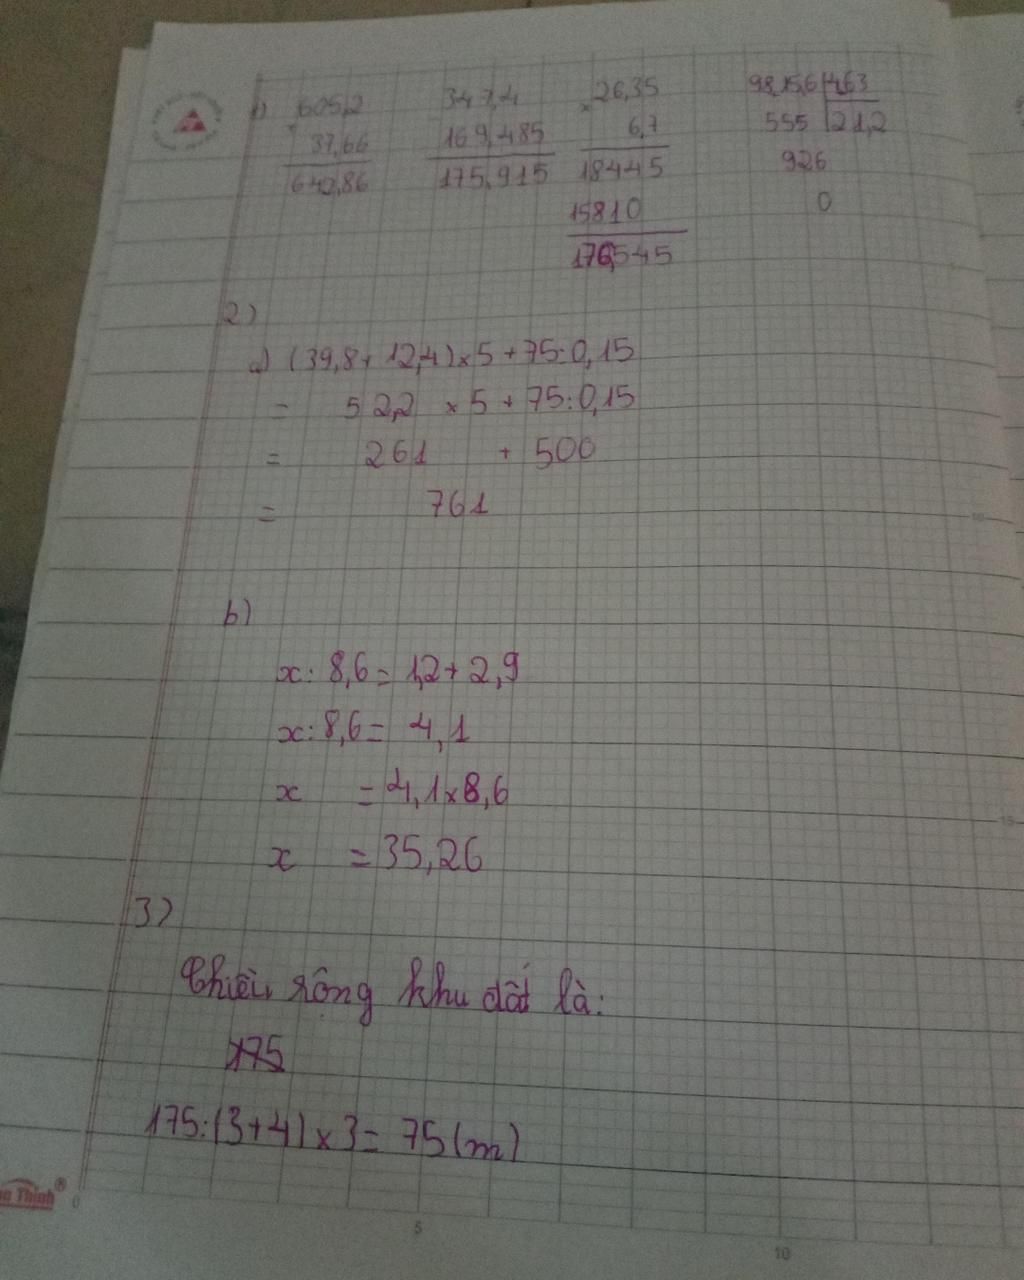 1) 605,2 347,4 × 26,35 98,15,6 4,63
+ 37,66 169,485 6,7 555 21,2
642,86 175,915 18445 926
15810 0
176,545
2)
a) (39,8 + 12,4) × 5 + 75:0,15
= 52,2 × 5 + 75:0,15
= 261 + 500
= 761
b)
x: 8,6 = 1,2 + 2,9
x: 8,6 = 4,1
x = 4,1 × 8,6
x = 35,26
3)
Chiều rộng khu đất là:
175
175:(3+4) × 3 = 75 (m)
Thịnh®
0
5
10
15